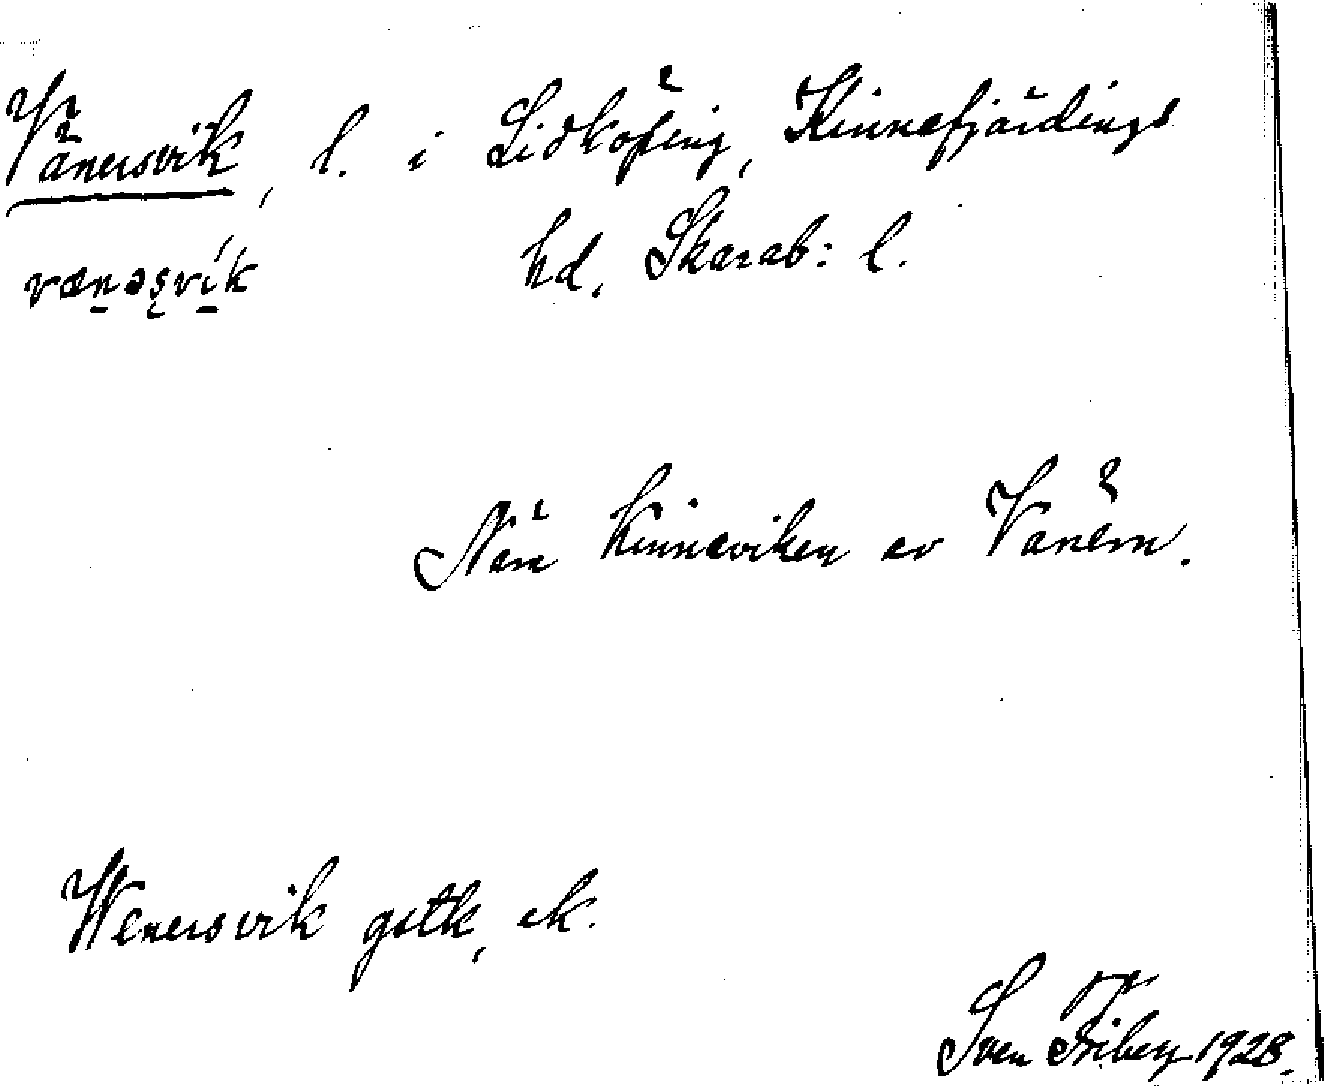 Vänersvik, l. i Lidköping, Kinnefjärdings
hd, Skarab: l.
Nära Kinneviken av Vänern.
Wenersvik gstk, ek.
Sven Friberg 1928.